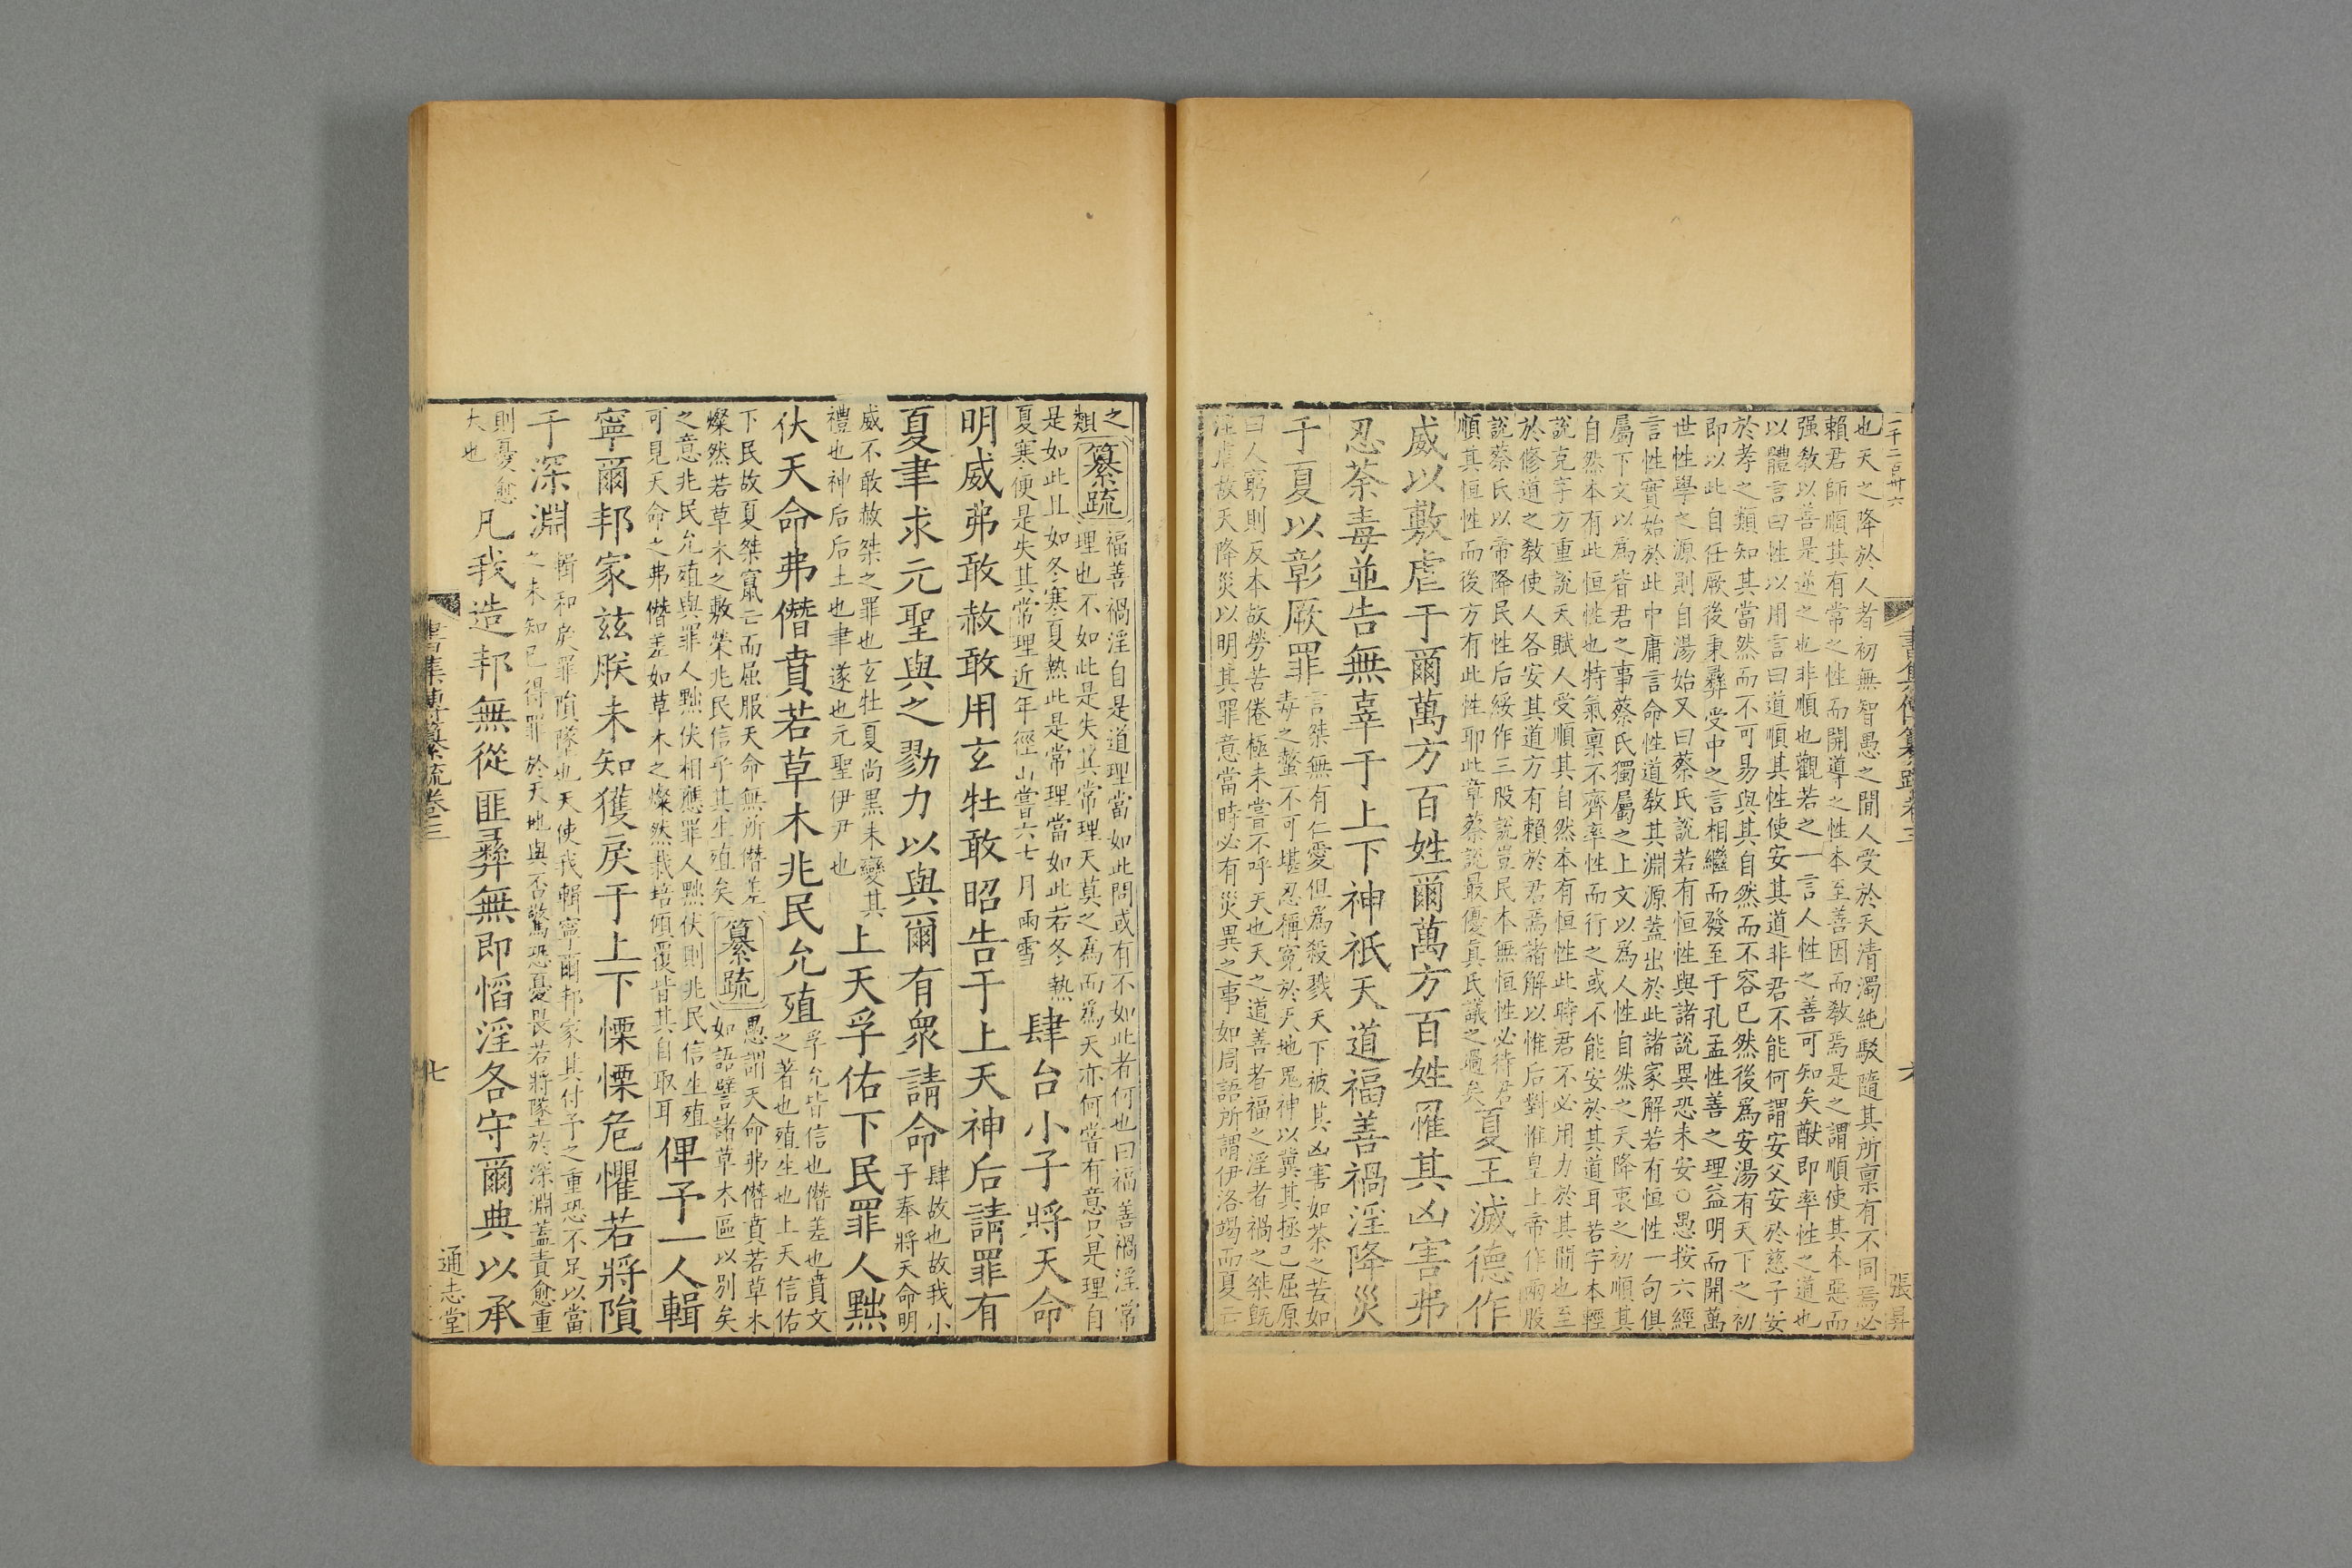 一千二百卅六
書集傳纂疏卷三
六
張昇
也天之降於人者初無智愚之間人受於天清濁純駁隨其所禀有不同焉必
賴君師順其有常之性而開導之性本至善因而教焉是之謂順使其本惡而
强教以善是逆之也非順也觀若之一言人性之善可知矣猷即率性之道也
以體言曰性以用言曰道順其性使安其道非君不能何謂安父安於慈子安
於孝之類知其當然而不可易與其自然而不容已然後爲安湯有天下之初
即以此自任厥後秉彝受中之言相繼而發至于孔孟性善之理益明而開萬
世性學之源則自湯始又曰蔡氏說若有恒性與諸說異恐未安○愚按六經
言性實始於此中庸言命性道教其淵源蓋出於此諸家解若有恒性一句俱
屬下文以爲皆君之事蔡氏獨屬之上文以爲人性自然之天降衷之初順其
自然本有此恒性也特氣禀不齊率性而行之或不能安於其道耳若字本輕
說克字方重說天賦人受順其自然本有恒性此時君不必用力於其間也至
於修道之教使人各安其道方有賴於君焉諸解以惟后對惟皇上帝作兩股
說蔡氏以帝降民性后綏作三股說豈民本無恒性必待君
順其恒性而後方有此性耶此章蔡說最優眞氏議之過矣
夏王滅德作
威以敷虐于爾萬方百姓爾萬方百姓罹其凶害弗
忍荼毒並告無辜于上下神祇天道福善禍淫降災
于夏以彰厥罪
言桀無有仁愛但爲殺戮天下被其凶害如荼之苦如
毒之螫不可堪忍稱冤於天地鬼神以冀其拯己屈原
曰人窮則反本故勞苦倦極未嘗不呼天也天之道善者福之淫者禍之桀既
淫虐故天降災以明其罪意當時必有災異之事如周語所謂伊洛竭而夏亡
之
類
纂疏
福善禍淫自是道理當如此問或有不如此者何也曰福善禍淫常
理也不如此是失其常理天莫之爲而爲天亦何嘗有意只是理自
是如此且如冬寒夏熱此是常理當如此若冬熱
夏寒便是失其常理近年徑山嘗六七月雨雪
肆台小子將天命
明威弗敢赦敢用玄牡敢昭告于上天神后請罪有
夏聿求元聖與之勠力以與爾有衆請命
肆故也故我小
子奉將天命明
威不敢赦桀之罪也玄牡夏尚黑未變其
禮也神后后土也聿遂也元聖伊尹也
上天孚佑下民罪人黜
伏天命弗僭賁若草木兆民允殖
孚允皆信也僭差也賁文
之著也殖生也上天信佑
下民故夏桀竄亡而屈服天命無所僭差
燦然若草木之敷榮兆民信乎其生殖矣
纂疏
愚謂天命弗僭賁若草木
如語譬諸草木區以別矣
之意兆民允殖與罪人黜伏相應罪人黜伏則兆民信生殖
可見天命之弗僭差如草木之燦然栽培傾覆皆其自取耳
俾予一人輯
寧爾邦家兹朕未知獲戾于上下慄慄危懼若將隕
于深淵
輯和戾罪隕墜也天使我輯寧爾邦家其付予之重恐不足以當
之未知己得罪於天地與否驚恐憂畏若將墜於深淵蓋責愈重
則憂愈
大也
凡我造邦無從匪彝無即慆淫各守爾典以承
書集傳纂疏卷三
七
通志堂